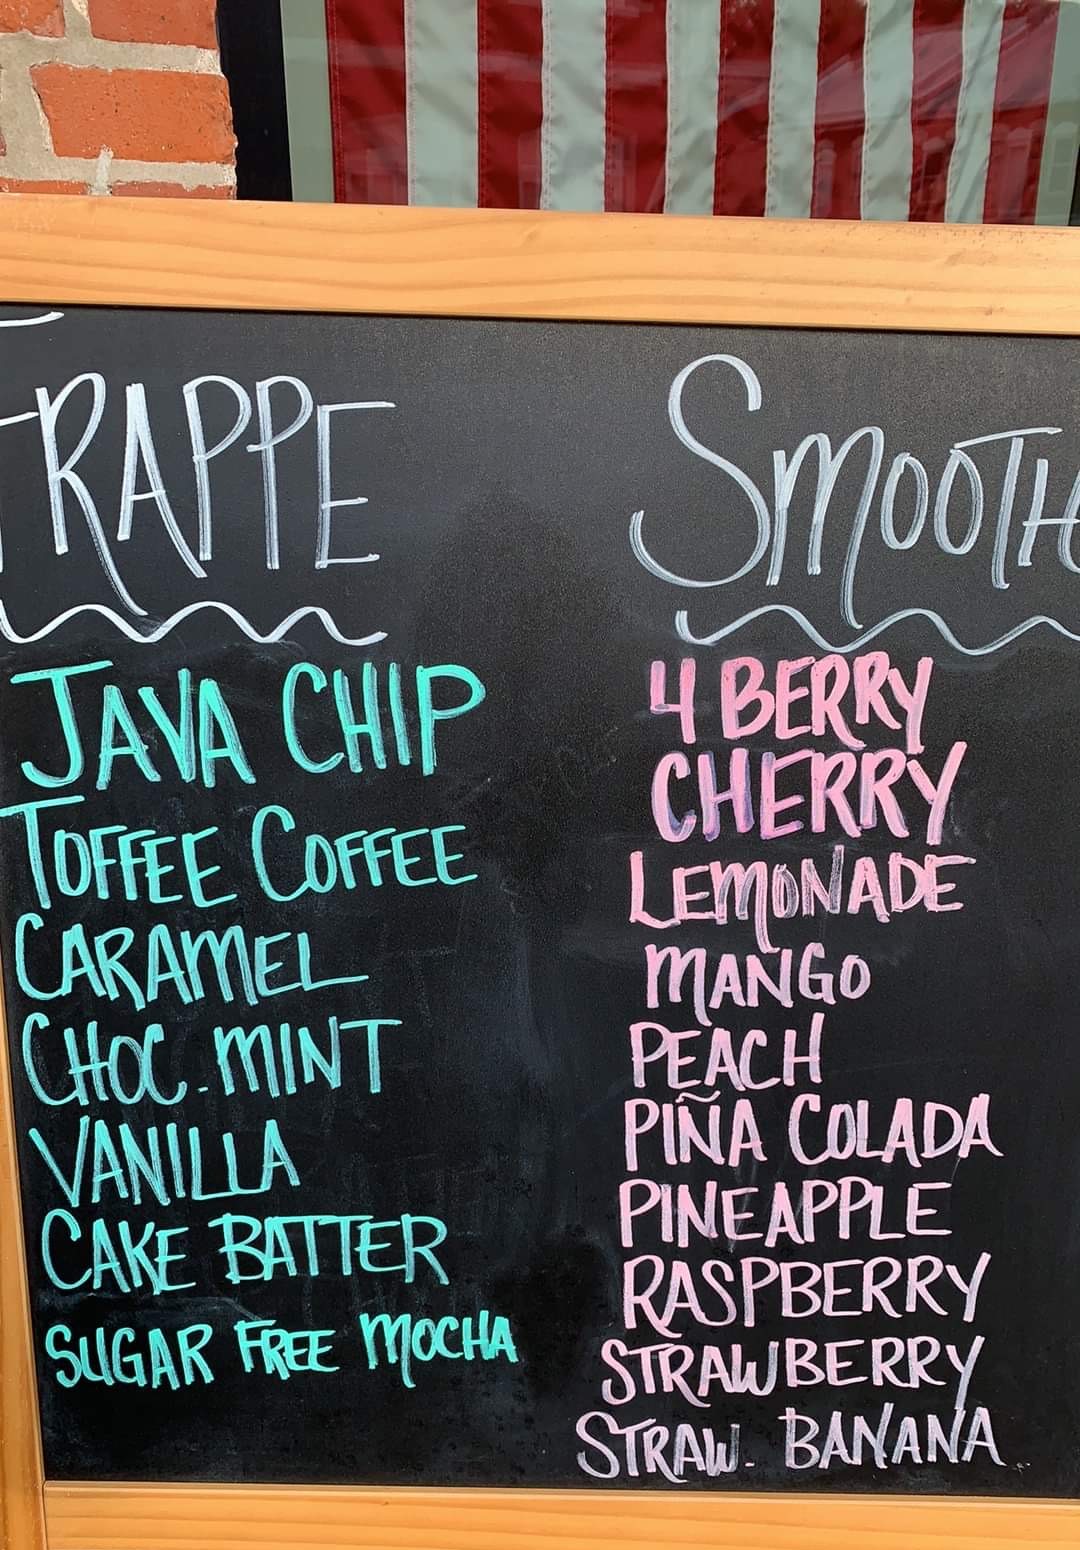 FRAPPE
JAVA CHIP
TOFFEE COFFEE
CARAMEL
CHOC. MINT
VANILLA
CAKE BATTER
SUGAR FREE MOCHA
SMOOTH
4 BERRY
CHERRY
LEMONADE
MANGO
PEACH
PIÑA COLADA
PINEAPPLE
RASPBERRY
STRAWBERRY
STRAW. BANANA